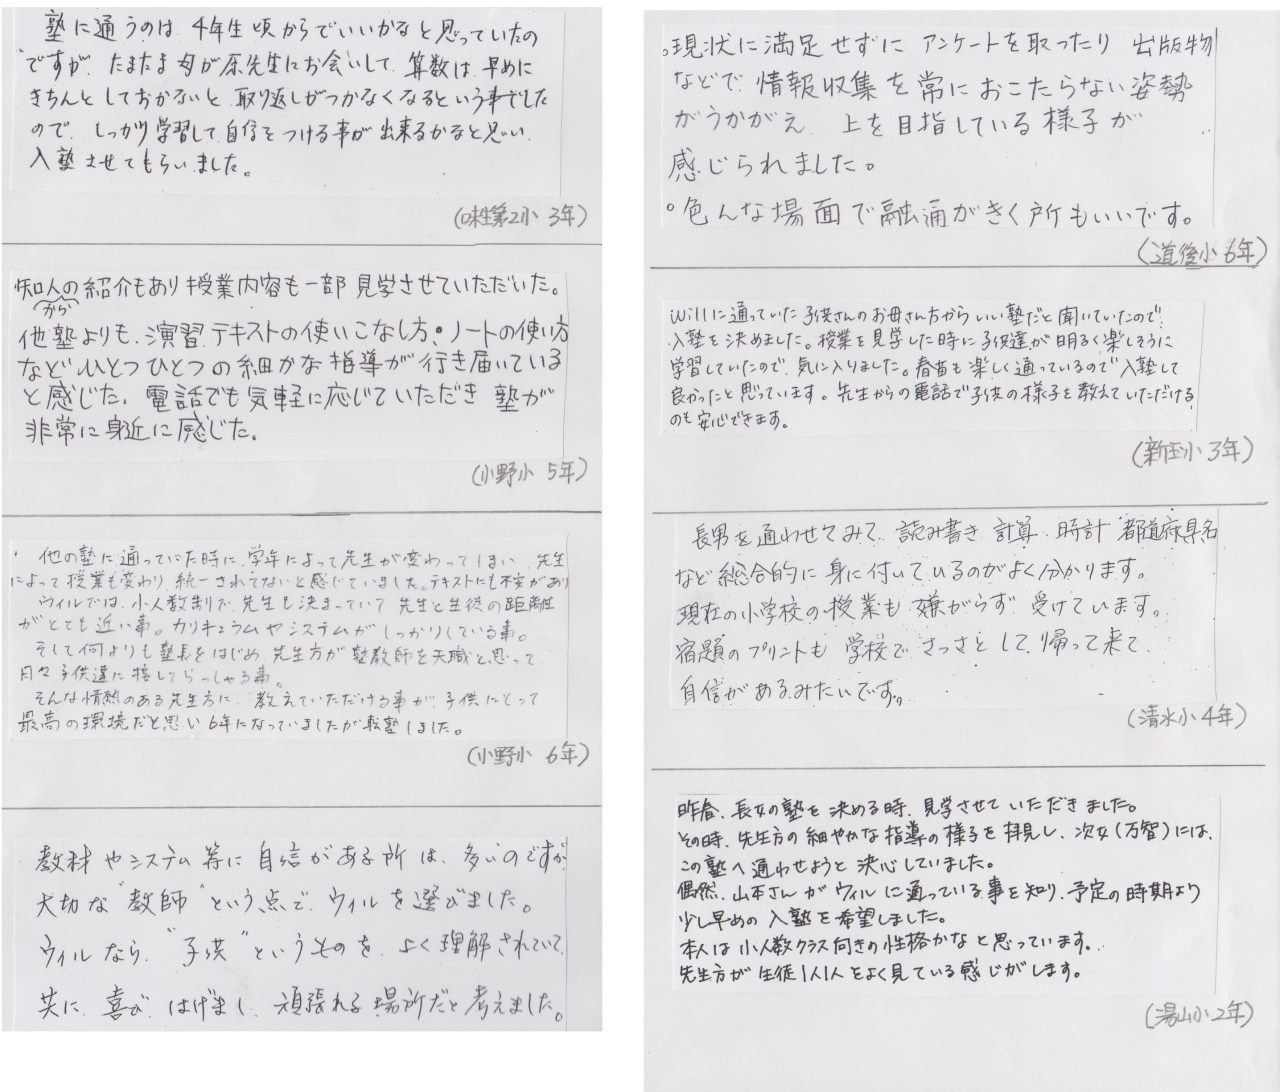 塾に通うのは 4年生頃からでいいかなと思っていたの
ですが、たまたま母が原先生にお会いして、算数は早めに
きちんとしておかないと、取り返しがつかなくなるという事でした
ので、しっかり学習して自信をつける事が出来るかなと思い、
入塾させてもらいました。
(味生第2小 3年)
知人の紹介もあり授業内容も一部見学させていただいた。
から
他塾よりも、演習テキストの使いこなし方・ノートの使い方
などひとつひとつの細かな指導が行き届いている
と感じた。電話でも気軽に応じていただき 塾が
非常に身近に感じた。
(小野小 5年)
他の塾に通っていた時に、学年によって先生が変わってしまい、先生
によって授業も変わり 統一されてないと感じていました。テキストにも不安があり
ウィルでは、小人数制で、先生も決まっていて 先生と生徒の距離
がとても近い事。カリキュラムやシステムがしっかりしている事。
そして何よりも塾長をはじめ、先生方が塾教師を天職と思って
日々子供達に接してらっしゃる事。
そんな情熱のある先生方に、教えていただける事が、子供にとって
最高の環境だと思い 6年になっていましたが転塾しました。
(小野小 6年)
教材やシステム等に自信がある所は、多いのですが
大切な"教師"という点で、ウィルを選びました。
ウィルなら、"子供"というものを、よく理解されていて、
共に、喜び、はげまし、頑張れる場所だと考えました。
。現状に満足せずに アンケートを取ったり 出版物
などで、情報収集を常におこたらない姿勢
がうかがえ、上を目指している様子が
感じられました。
。色んな場面で融通がきく所もいいです。
(道後小 6年)
Willに通っていた子供さんのお母さん方からいい塾だと聞いていたので、
入塾を決めました。授業を見学した時に子供達が明るく楽しそうに
学習していたので、気に入りました。春苗も楽しく通っているので入塾して
良かったと思っています。先生からの電話で子供の様子を教えていただける
のも安心できます。
(新玉小 3年)
長男を通わせてみて、読み書き、計算、時計、都道府県名
など総合的に身に付いているのがよく分かります。
現在の小学校の授業も嫌がらず受けています。
宿題のプリントも学校でさっさとして帰って来て、
自信があるみたいです。
(清水小 4年)
昨春、長女の塾を決める時、見学させていただきました。
その時、先生方の細やかな指導の様子を拝見し、次女(万智)には、
この塾へ通わせようと決心していました。
偶然、山本さんがウィルに通っている事を知り、予定の時期より
少し早めの入塾を希望しました。
本人は小人数クラス向きの性格かなと思っています。
先生方が生徒1人1人をよく見ている感じがします。
(湯山小 2年)